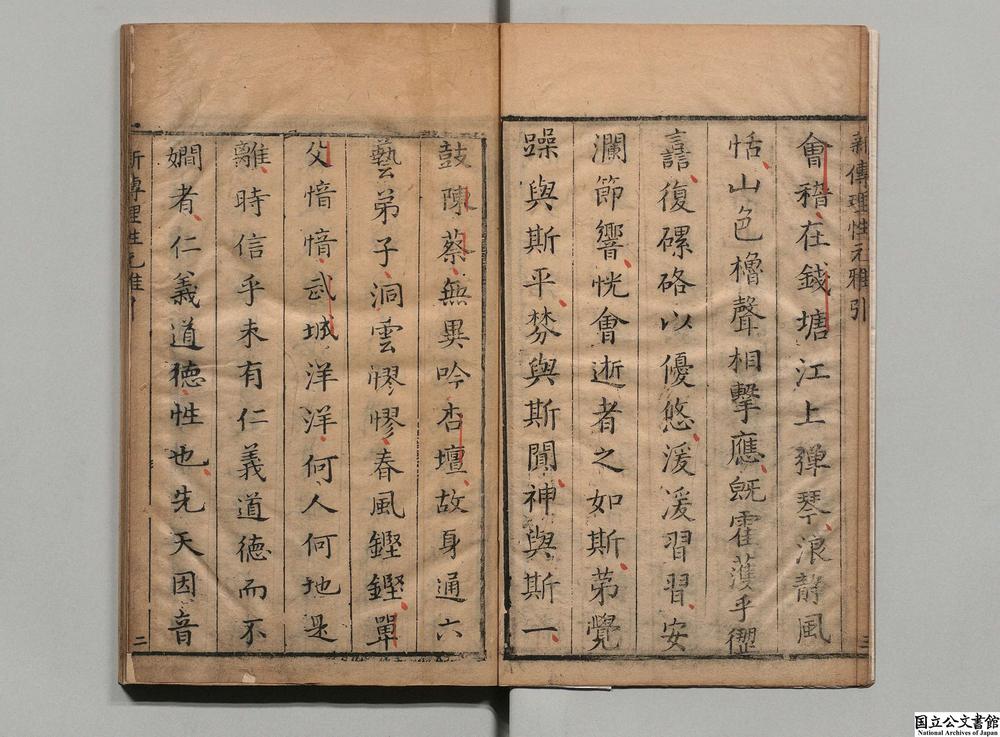 新傳理性元雅引
會稽在錢塘江上彈琴浪靜風
恬山色櫓聲相擊應既霍濩乎
譶復磥硌以優悠湲湲習習安
瀾節響恍會逝者之如斯苐覺
躁與斯平棼與斯聞神與斯一
鼓陳蔡無異吟杏壇故身通六
藝弟子洞雲憀憀春風鏗鏗單
父愔愔武城洋洋何人何地是
離時信乎未有仁義道德而不
嫺者仁義道德性也先天因音
新傳理性元雅引
二
国立公文書館
National Archives of Japan